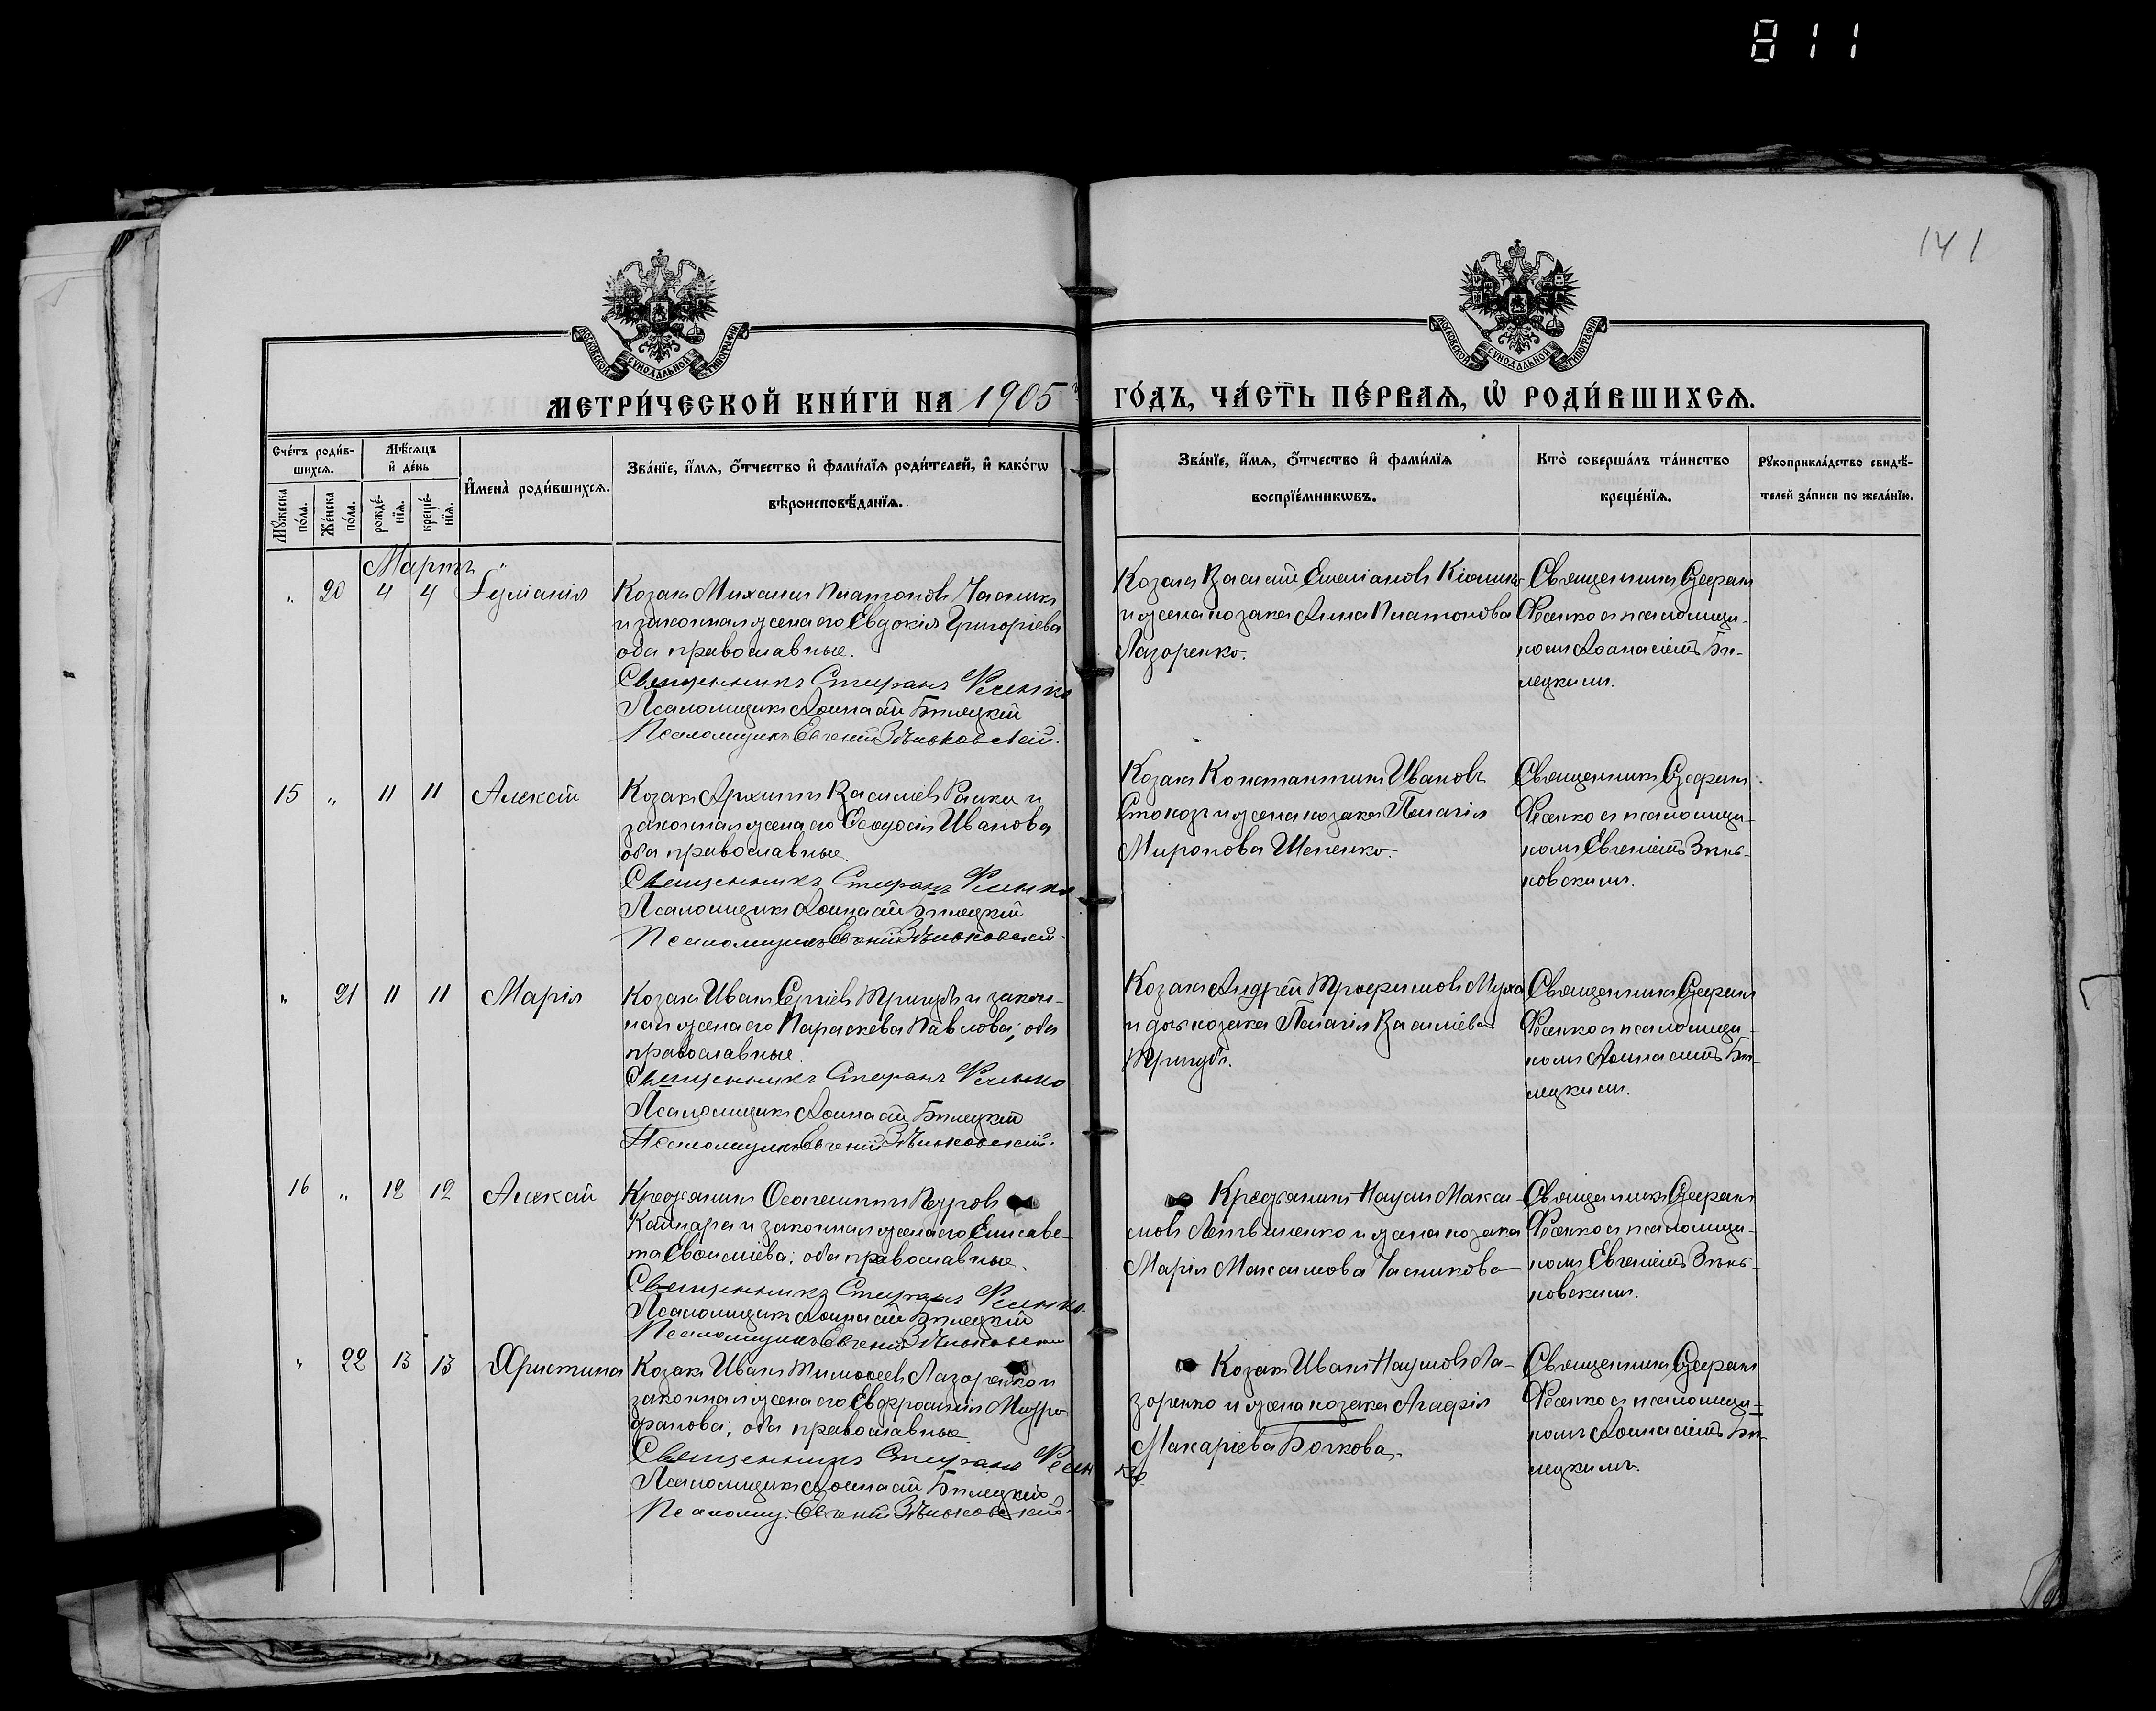 811
141
МОСКОВСКОЙ СѴНОДАЛЬНОЙ ТИПОГРАФІИ
МОСКОВСКОЙ СѴНОДАЛЬНОЙ ТИПОГРАФІИ
МЕТРИ́ЧЕСКОЙ КНИ́ГИ НА 1905 ГО́ДЪ, ЧА́СТЬ ПЕ́РВАЯ, Ѡ РОДИ́ВШИХСЯ.
Сче́тъ роди́в-
шихся.
Мꙋ́жеска по́ла.
Же́нска по́ла.
Мѣ́сяцъ и де́нь
рожде́-
нїя.
креще́-
нїя.
Имена̀ роди́вшихся.
Зва́нїе, и́мя, о́тчество и фами́лїя роди́телей, и како́гѡ
вѣроисповѣ́данїя.
Зва́нїе, и́мя, о́тчество и фами́лїя
воспрїе́мникѡвъ.
Кто̀ соверша́лъ та́инство
креще́нїя.
Рꙋкоприкла́дство свидѣ́-
телей за́писи по жела́нїю.
Мартъ
" 20 4 4 Іуліанія
Козакъ Михаилъ Платоновъ Часникъ
и законная жена его Евдокія Григоріева
оба православные.
Священникъ Стефанъ Фесенко
Псаломщикъ Аѳанасій Билецкій
Псаломщикъ Евгеній Зѣньковскій.
Козакъ Василій Емеліановъ
и жена козака Анна Платонова
Лазоренко.
Священникъ Стефанъ
Фесенко съ псаломщи-
комъ Аѳанасіемъ Би-
лецкимъ.
15 " 11 11 Алексій
Козакъ Архиппъ Василіевъ и
законная жена его Ѳеодосія Иванова
оба православные.
Священникъ Стефанъ Фесенко
Псаломщикъ Аѳанасій Билецкій
Псаломщикъ Евгеній Зѣньковскій.
Козакъ Константинъ Ивановъ
и жена козака Пелагія
Миронова Шепенко.
Священникъ Стефанъ
Фесенко съ псаломщи-
комъ Евгеніемъ Зѣнь-
ковскимъ.
" 21 11 11 Марія
Козакъ Иванъ Сергіевъ Тригубъ и закон-
ная жена его Параскева Павлова; оба
православные.
Священникъ Стефанъ Фесенко
Псаломщикъ Аѳанасій Билецкій
Псаломщикъ Евгеній Зѣньковскій.
Козакъ Андрей Трофимовъ Муха
и дочь козака Пелагія Василіева
Тригубъ.
Священникъ Стефанъ
Фесенко съ псаломщи-
комъ Аѳанасіемъ Би-
лецкимъ.
16 " 12 12 Алексій
Крестьянинъ Ѳеогемптъ Петровъ
и законная жена его Елисаве-
та Евсиміева; оба православные.
Священникъ Стефанъ Фесенко
Псаломщикъ Аѳанасій Билецкій
Псаломщикъ Евгеній Зѣньковскій
Крестьянинъ Наумъ Макси-
мовъ Литвиненко и жена козака
Марія Максимова Часникова
Священникъ Стефанъ
Фесенко съ псаломщи-
комъ Евгеніемъ Зѣнь-
ковскимъ.
" 22 13 13 Христина
Козакъ Иванъ Тимоѳеевъ Лазоренко и
законная жена его Евфросинія Митро-
фанова; оба православные.
Священникъ Стефанъ Фесенко
Псаломщикъ Аѳанасій Билецкій
Псаломщ. Евгеній Зѣньковскій.
Козакъ Иванъ Наумовъ Ла-
зоренко и жена козака Агафія
Макаріева Бочкова.
Священникъ Стефанъ
Фесенко съ псаломщи-
комъ Аѳанасіемъ Би-
лецкимъ.